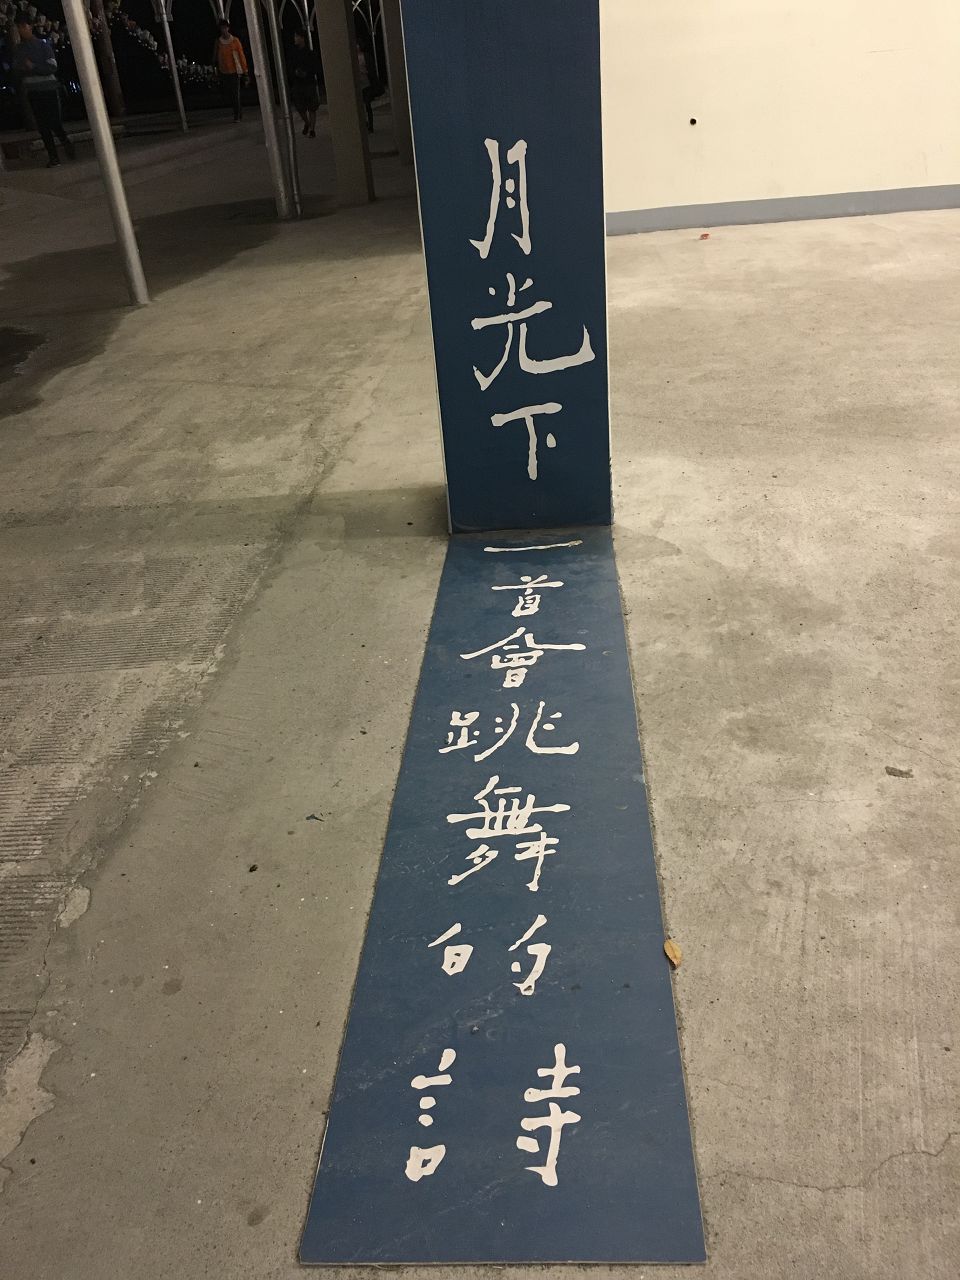 月光下
一首會跳舞的詩